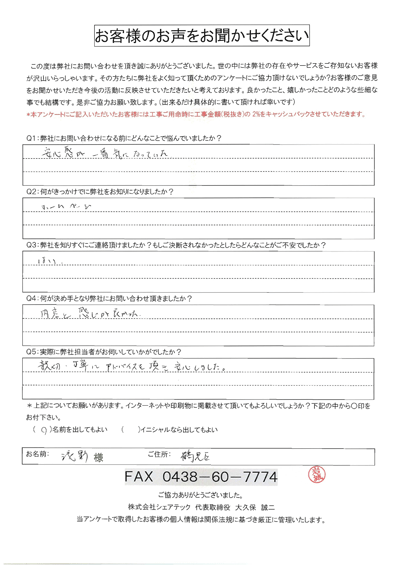 お客様のお声をお聞かせください
この度は弊社にお問い合わせを頂き誠にありがとうございました。世の中には弊社の存在やサービスをご存知ないお客様
が沢山いらっしゃいます。その方たちに弊社をよく知って頂くためのアンケートにご協力頂けないでしょうか？お客様のご意見
をお聞かせいただき今後の活動に反映させていただきたいと考えております。良かったこと、嬉しかったことどのような些細な
事でも結構です。是非ご協力お願い致します。（出来るだけ具体的に書いて頂ければ幸いです）
*本アンケートにご記入いただいたお客様には工事ご用命時に工事金額（税抜き）の 2%をキャッシュバックさせていただきます。
Q1：弊社にお問い合わせになる前にどんなことで悩んでいましたか？
安心感が 一番気になっていた
Q2：何がきっかけで弊社をお知りになりましたか？
ホームページ
Q3：弊社を知りすぐにご連絡頂けましたか？もしご決断されなかったとしたらどんなことがご不安でしたか？
はい
Q4：何が決め手となり弊社にお問い合わせ頂きましたか？
内容と 感じが良かった
Q5：実際に弊社担当者がお伺いしていかがでしたか？
親切・丁寧に アドバイスを頂き 安心しました。
＊上記についてお願いがあります。インターネットや印刷物に掲載させて頂いてもよろしいでしょうか？下記の中から〇印を
お付下さい。
（〇）名前を出してもよい （ ）イニシャルなら出してもよい
お名前： 様 ご住所： 鶴見区
FAX 0438-60-7774
ご協力ありがとうございました。
株式会社シェアテック 代表取締役 大久保 誠二
当アンケートで取得したお客様の個人情報は関係法規に基づき厳正に管理いたします。